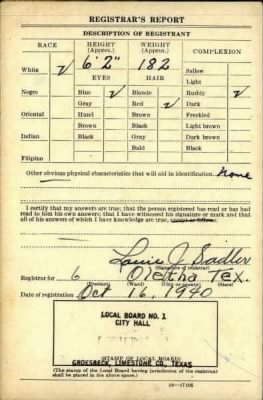 REGISTRAR'S REPORT
DESCRIPTION OF REGISTRANT
RACE HEIGHT (Approx.) WEIGHT (Approx.) COMPLEXION
White ✓ 6' 2" 182 Sallow
EYES HAIR Light
Negro Blue ✓ Blonde Ruddy ✓
Gray Red ✓ Dark
Oriental Hazel Brown Freckled
Brown Black Light brown
Indian Black Gray Dark brown
Bald Black
Filipino
Other obvious physical characteristics that will aid in identification None
I certify that my answers are true; that the person registered has read or has had
read to him his own answers; that I have witnessed his signature or mark and that
all of his answers of which I have knowledge are true, except as follows:
Louie J. Sadler
(Signature of registrar)
Registrar for 6 Oletha Tex.
(Precinct) (Ward) (City or county) (State)
Date of registration Oct 16, 1940
LOCAL BOARD NO. 1
CITY HALL
GROESBECK, LIMESTONE CO., TEXAS
(STAMP OF LOCAL BOARD)
(The stamp of the Local Board having jurisdiction of the registrant
shall be placed in the above space.)